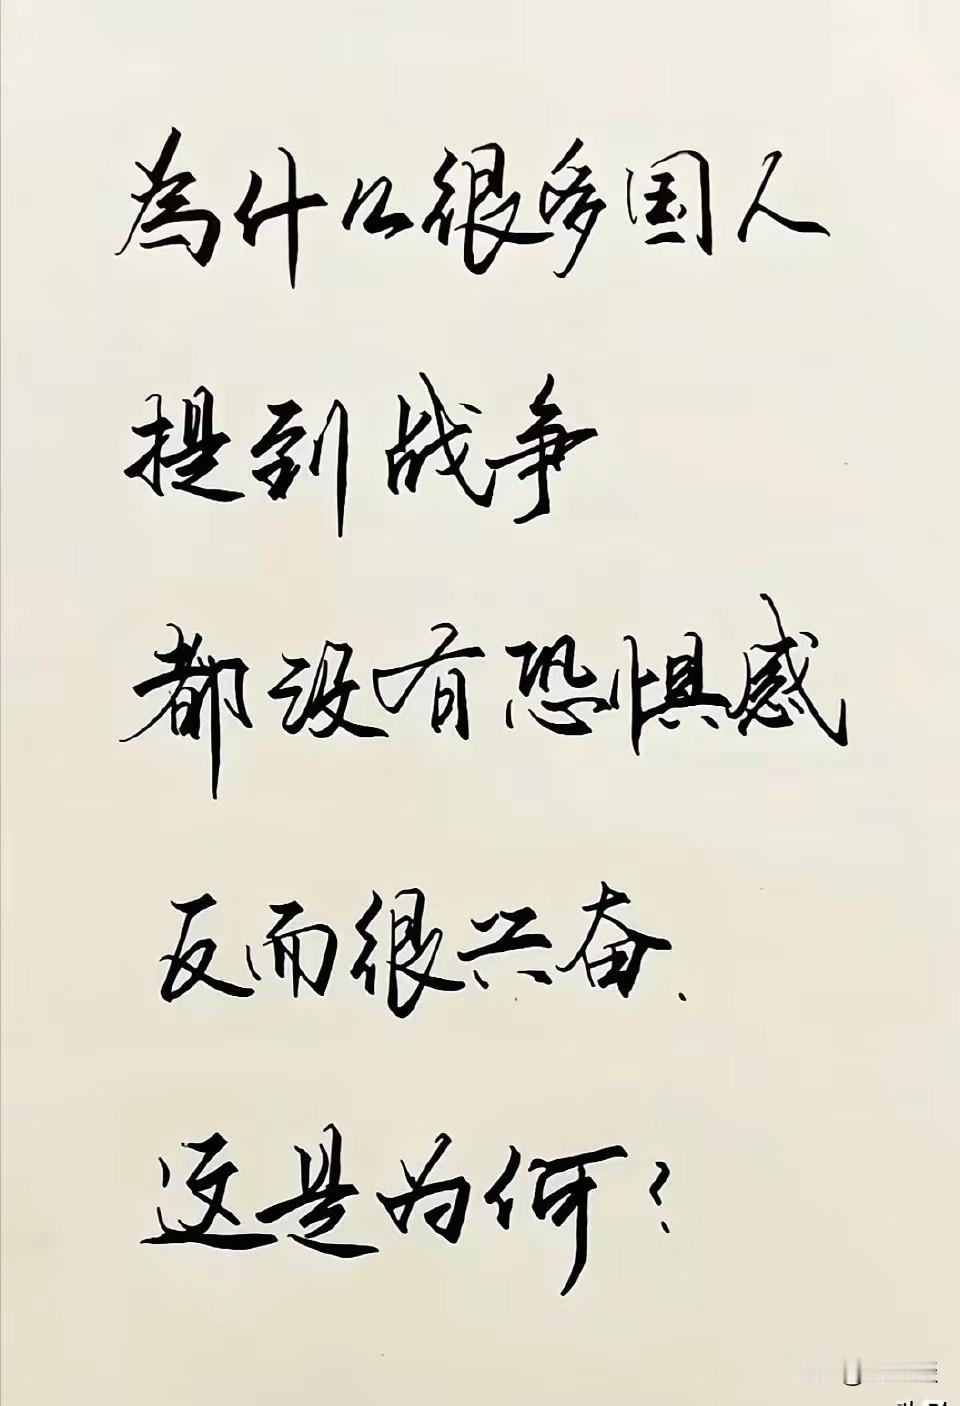 為什么很多国人
提到战争
都没有恐惧感
反而很兴奋、
这是为何？